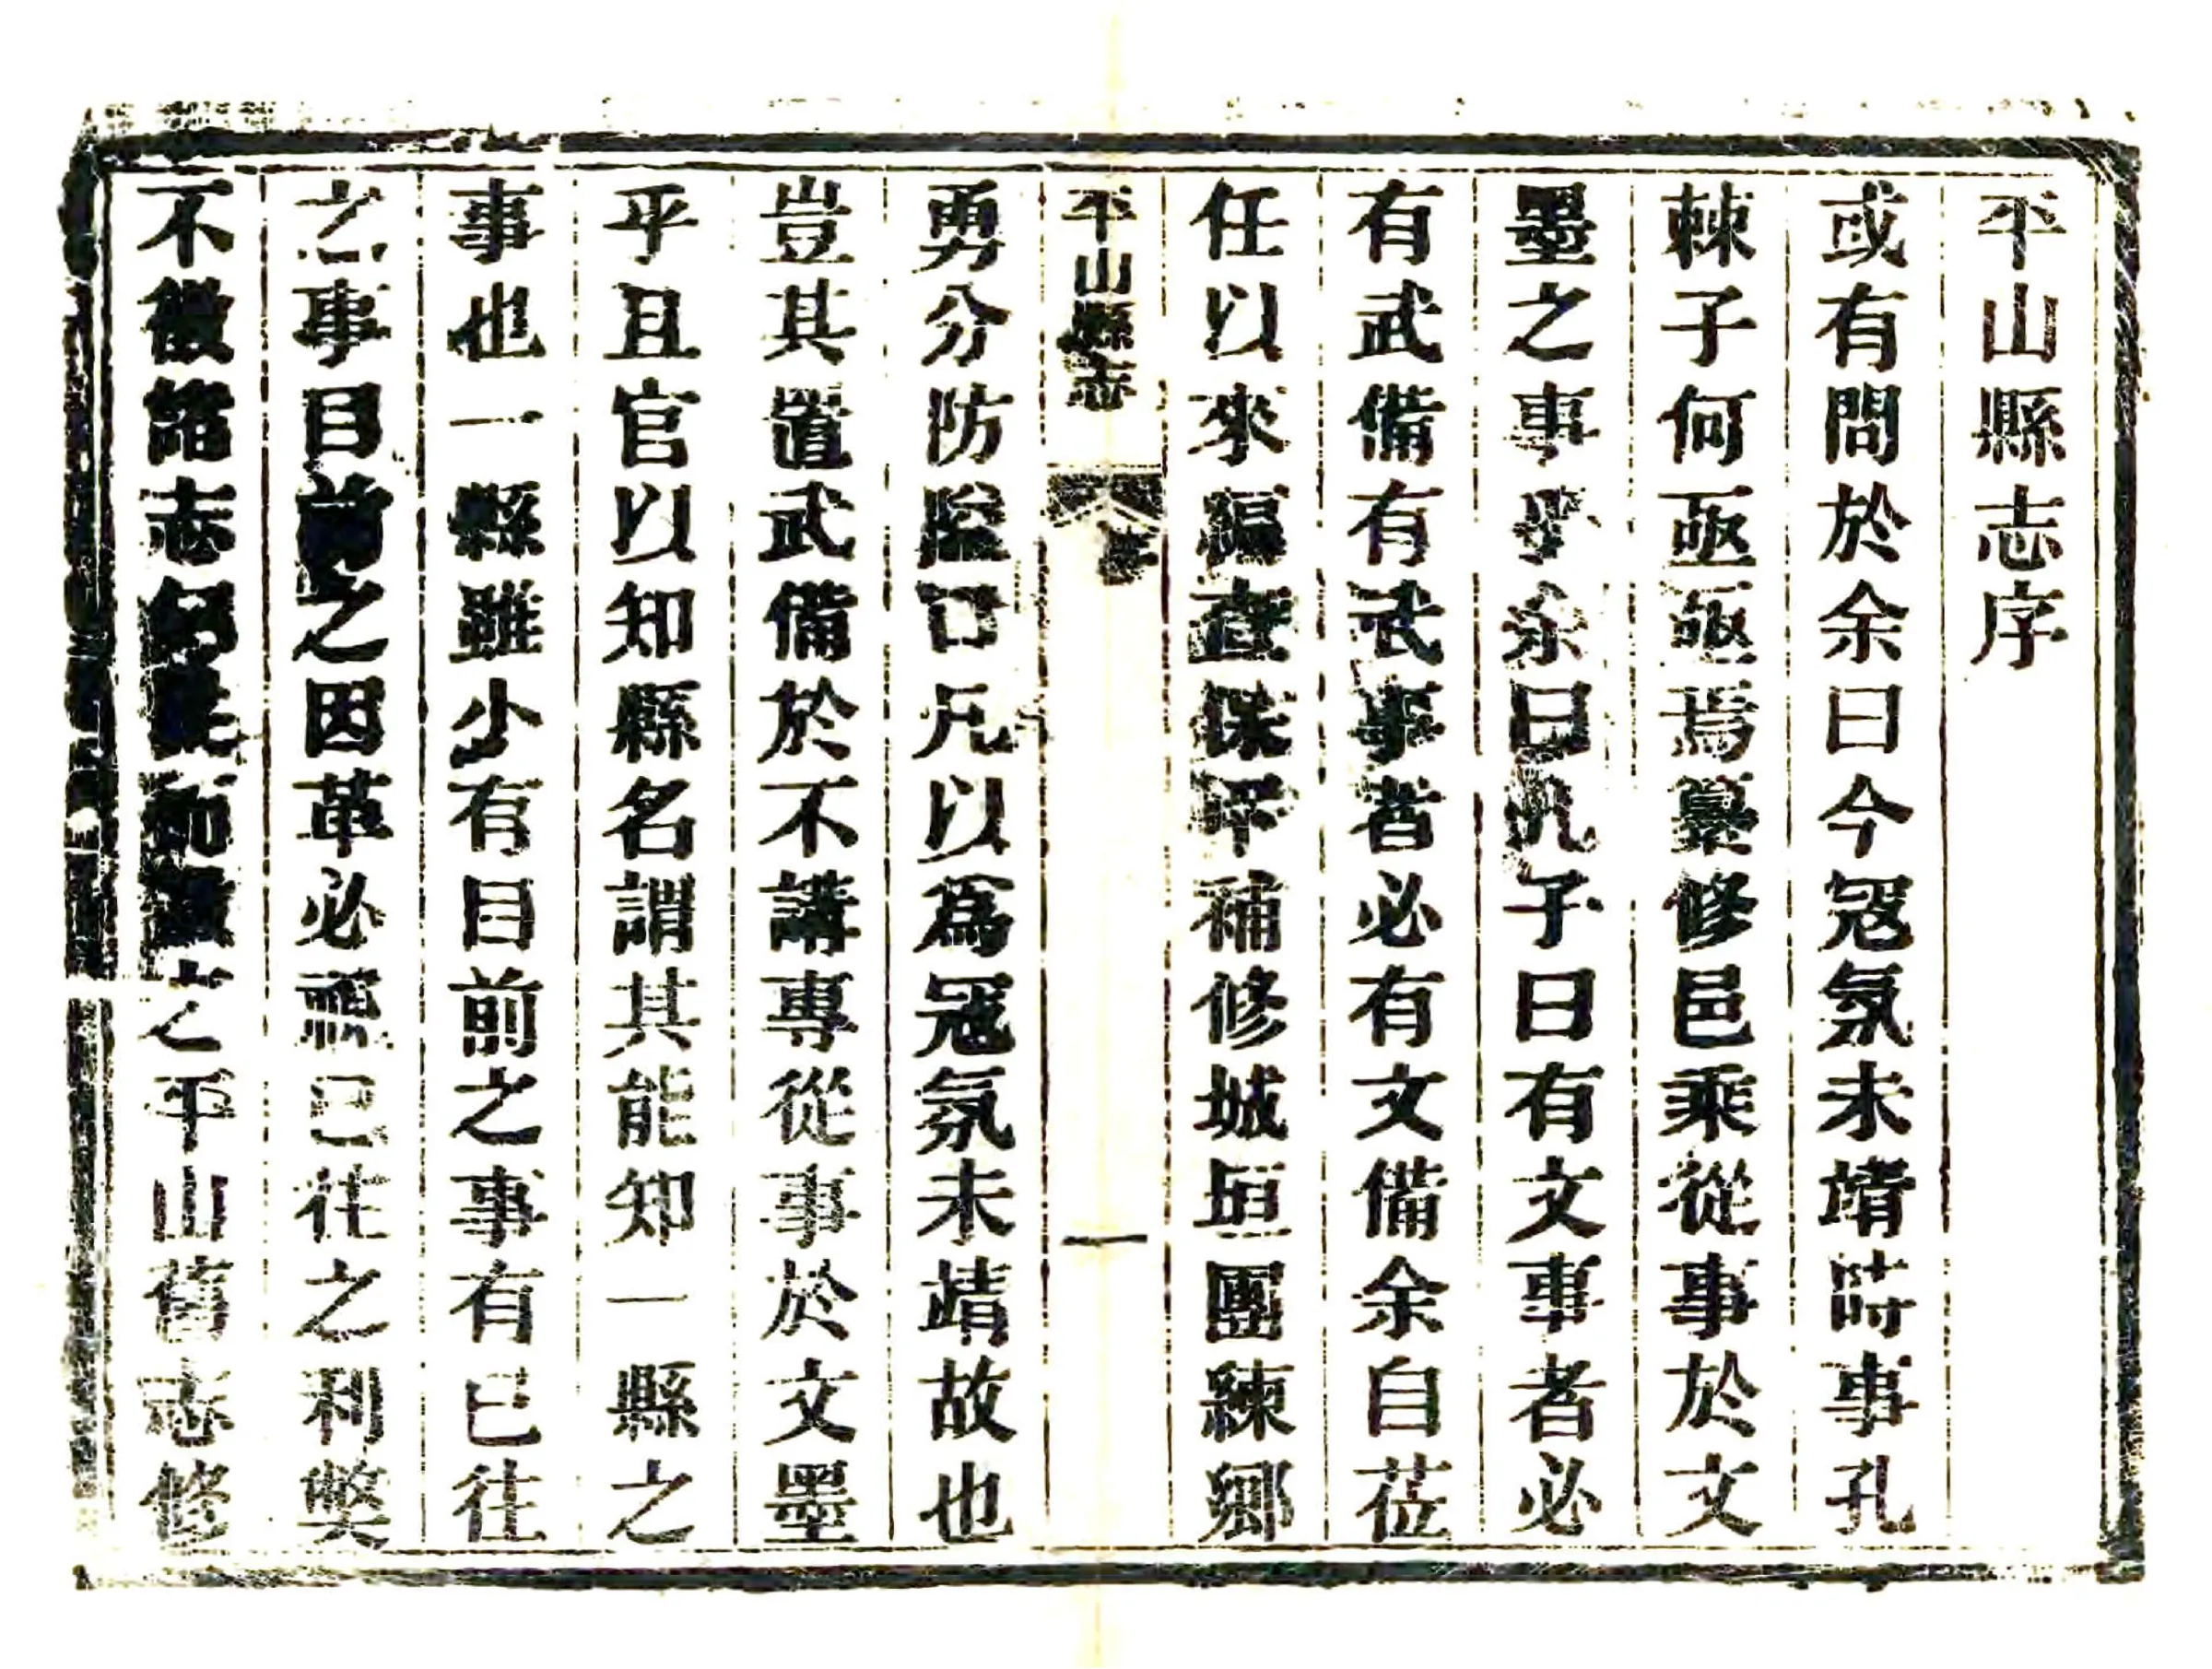 平山縣志序
或有問於余曰今冦氛未靖時事孔
棘子何亟亟焉纂修邑乘從事於文
墨之事乎余曰孔子曰有文事者必
有武備有武事者必有文備余自莅
任以來編查保甲補修城垣團練鄉
平山縣志
序
一
勇分防隘口凡以爲冦氛未靖故也
豈其置武備於不講專從事於文墨
乎且官以知縣名謂其能知一縣之
事也一縣雖少有目前之事有已往
之事目前之因革必視已往之利獘
不徵諸志何從知之平山舊志修